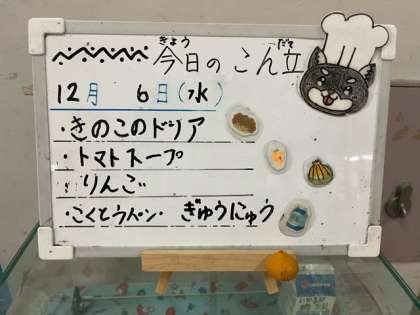 今日のこん立
きょう だて
12月 6日(水)
・きのこのドリア
・トマトスープ
りんご
・こくとうパン ぎゅうにゅう